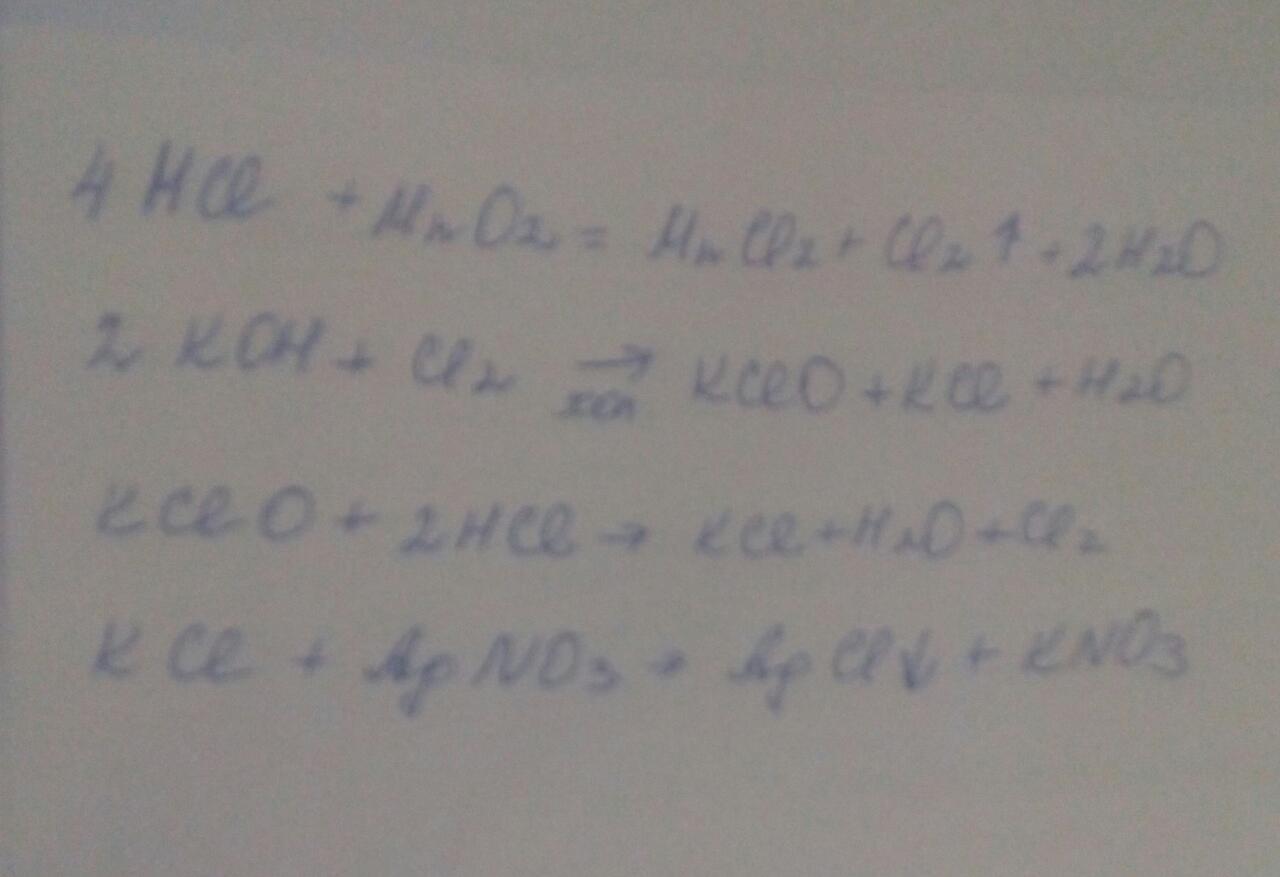 4 HCl + MnO2 = MnCl2 + Cl2 ↑ + 2H2O
2 KOH + Cl2 → хол KClO + KCl + H2O
KClO + 2HCl → KCl + H2O + Cl2
KCl + AgNO3 → AgCl↓ + KNO3